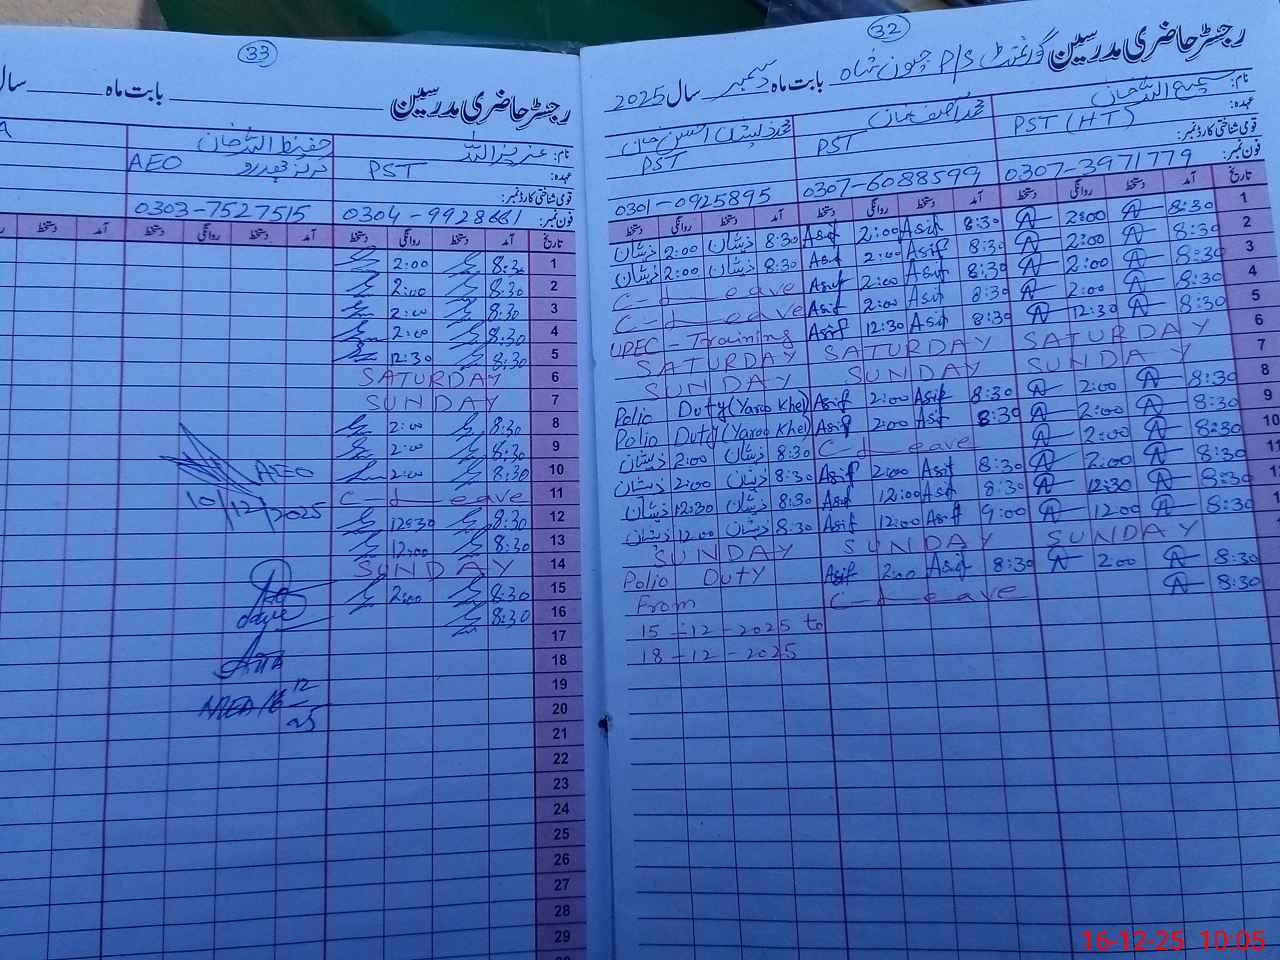 32
رجسٹر حاضری مدرسین گورنمنٹ P/S چون شاہ بابت ماہ دسمبر سال 2025
نام: سمیع اللہ خان محمد آصف خان محمد ذیشان الحسن خان
عہدہ: PST (HT) PST PST
قومی شناختی کارڈ نمبر:
فون نمبر: 0307-3971779 0307-6088599 0301-0925895
تاریخ آمد دستخط روانگی دستخط آمد دستخط روانگی دستخط آمد دستخط روانگی دستخط
1 8:30 2:00 8:30 Asif 2:00 Asif 8:30 ذیشان 2:00 ذیشان
2 8:30 2:00 8:30 Asif 2:00 Asif 8:30 ذیشان 2:00 ذیشان
3 8:30 2:00 8:30 Asif 2:00 Asif C-Leave
4 8:30 2:00 8:30 Asif 2:00 Asif C-Leave
5 8:30 12:30 8:30 Asif 12:30 Asif UPEC - Training
6 SATURDAY SATURDAY SATURDAY
7 SUNDAY SUNDAY SUNDAY
8 8:30 2:00 8:30 Asif 2:00 Asif Polio Duty (Yaroo Khel)
9 8:30 2:00 8:30 Asif 2:00 Asif Polio Duty (Yaroo Khel)
10 8:30 2:00 C-Leave 8:30 ذیشان 2:00 ذیشان
8:30 2:00 8:30 Asif 2:00 Asif 8:30 ذیشان 2:00 ذیشان
8:30 12:30 8:30 Asif 12:00 Asif 8:30 ذیشان 12:30 ذیشان
8:30 1200 9:00 Asif 12:00 Asif 8:30 ذیشان 12:00 ذیشان
SUNDAY SUNDAY SUNDAY
8:30 2:00 8:30 Asif 2:00 Asif Polio Duty
8:30 C-Leave From
15-12-2025 to
18-12-2025
33
رجسٹر حاضری مدرسین بابت ماہ سال
نام: عزیز اللہ حفیظ اللہ خان
عہدہ: PST AEO
قومی شناختی کارڈ نمبر:
فون نمبر: 0304-9928661 0303-7527515
تاریخ آمد دستخط روانگی دستخط آمد دستخط روانگی دستخط آمد
1 8:30 2:00
2 8:30 2:00
3 8:30 2:00
4 8:30 2:00
5 8:30 12:30
6 SATURDAY
7 SUNDAY
8 8:30 2:00
9 8:30 2:00
10 8:30 2:00 AEO
11 C-Leave 10/12/2025
12 8:30 12:30
13 8:30 12:00
14 SUNDAY
15 8:30 2:00
16 8:30
17
18
19
20
21
22
23
24
25
26
27
28
29
16-12-25 10:05